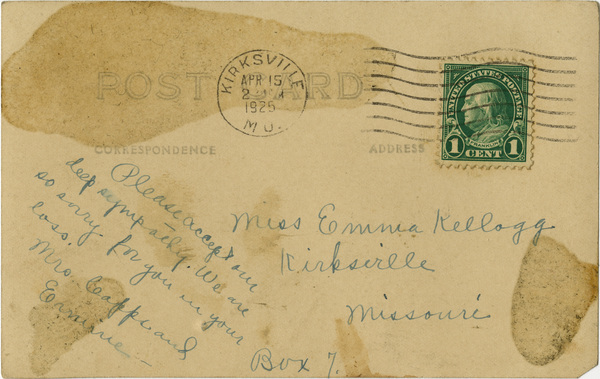 POST CARD
KIRKSVILLE
APR 15
1925
MO.
UNITED STATES POSTAGE
FRANKLIN
1 CENT 1
CORRESPONDENCE
ADDRESS
Please accept our
deep sympathy. We are
so sorry for you in your
loss.
Mrs. Capps and
Ermine
Miss Emma Kellogg
Kirksville
Missouri
Box 7.